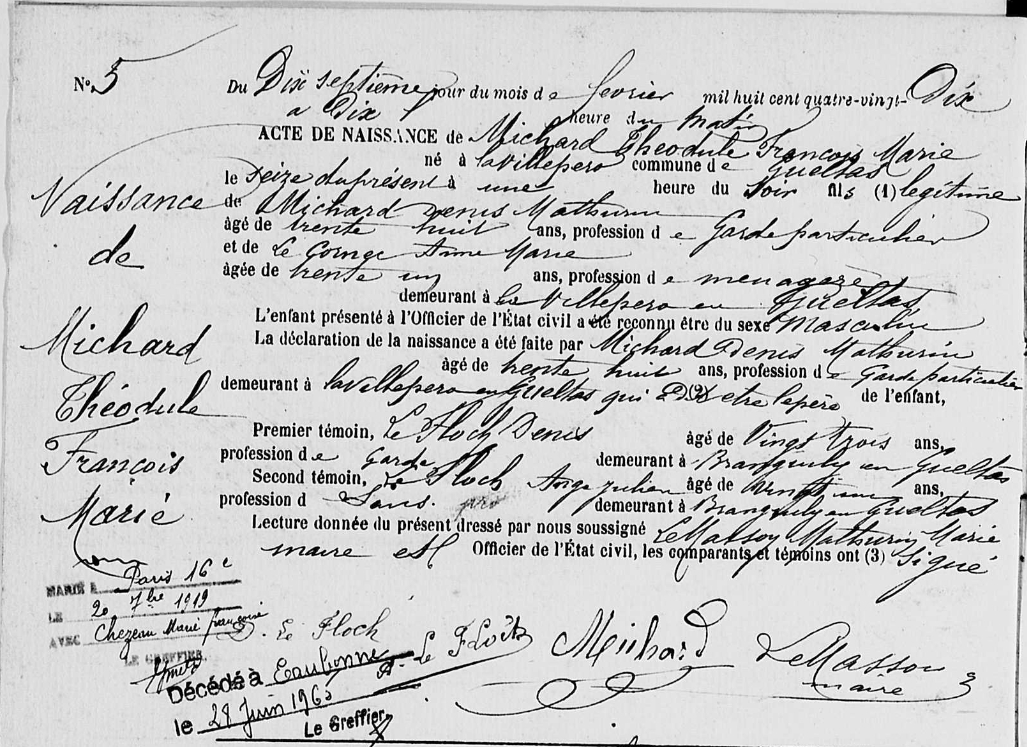 N° 5
Du Dix septième jour du mois de fevrier mil huit cent quatre-vingt-Dix
a Dix heure du matin
ACTE DE NAISSANCE de Michard Theodule François Marie
né à lavillepero commune de Gueltas
le Seize duprésent à une heure du Soir fils (1) legitime
de Michard Denis Mathurin
âgé de trente huit ans, profession de Garde particulier
et de Le Gorage Anne Marie
âgée de trente un ans, profession de menagere
demeurant à la Villepero en Gueltas
L'enfant présenté à l'Officier de l'État civil a été reconnu être du sexe Masculin
La déclaration de la naissance a été faite par Michard Denis Mathurin
âgé de trente huit ans, profession de Garde particulier
demeurant à lavillepero en Gueltas qui D(2) etre lepère de l'enfant,
Premier témoin, Le Floch Denis âgé de Vingt trois ans,
profession de Garde demeurant à Branguily en Gueltas
Second témoin, Le Floch Ange julien âgé de Vingt un ans,
profession d Sans pro demeurant à Branguily en Gueltas
Lecture donnée du présent dressé par nous soussigné LeMasson Mathurin Marie
maire et Officier de l'État civil, les comparants et témoins ont (3) Signé
Naissance
de
Michard
Théodule
François
Marie
MARIÉ A Paris 16e
LE 20 7bre 1919
AVEC Chezeau Marie françoise
LE GREFFIER
D. Le Floch
A. Le Floch
Michard
LeMasson
maire
Décédé à Eaubonne
le 28 Juin 1965
Le Greffier